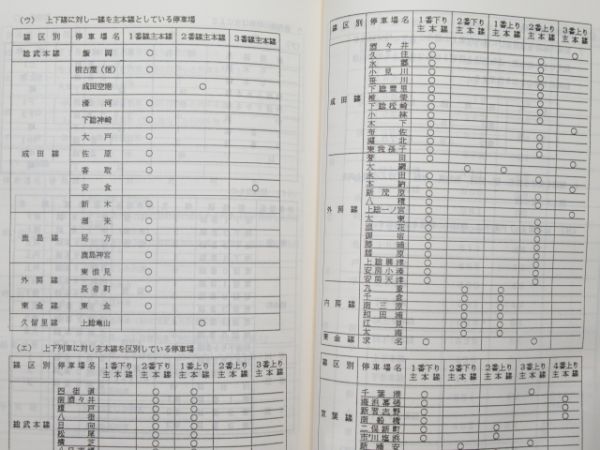 (ウ) 上下線に対し一線を主本線としている停車場
線区別 停車場名 1番線主本線 2番線主本線 3番線主本線
総武本線 飯岡 ○
成田線 根古屋(信) ○
成田空港 ○
滑河 ○
下総神崎 ○
大戸 ○
佐原 ○
香取 ○
安食 ○
新木 ○
鹿島線 潮来 ○
延方 ○
鹿島神宮 ○
外房線 東浪見 ○
長者町 ○
東金線 東金 ○
久留里線 上総亀山 ○
(エ) 上下列車に対し主本線を区別している停車場
線区別 停車場名 1番下り主本線 2番下り主本線 2番上り主本線 3番上り主本線
総武本線 四街道
南酒々井
榎戸
八街
日向
松尾
横芝
線区別 停車場名 1番下り主本線 2番下り主本線 1番上り主本線 2番上り主本線 3番上り主本線
成田線 酒々井
久住
水郷
小見川
笹川
下総豊里
椎柴
下総松崎
小林
木下
布佐
湖北
東我孫子
外房線 誉田
大網
永田
本納
新茂原
八積
上総一ノ宮
太東
浪花
御宿
勝浦
鵜原
上総興津
安房小湊
安房天津
内房線 九重
千倉
南三原
和田浦
江見
太海
東金線 求名
線区別 停車場名 1番下り主本線 2番下り主本線 3番上り主本線 4番上り主本線
京葉線 千葉港
海浜幕張
新習志野
南船橋
二俣新町
市川塩浜
新浦安